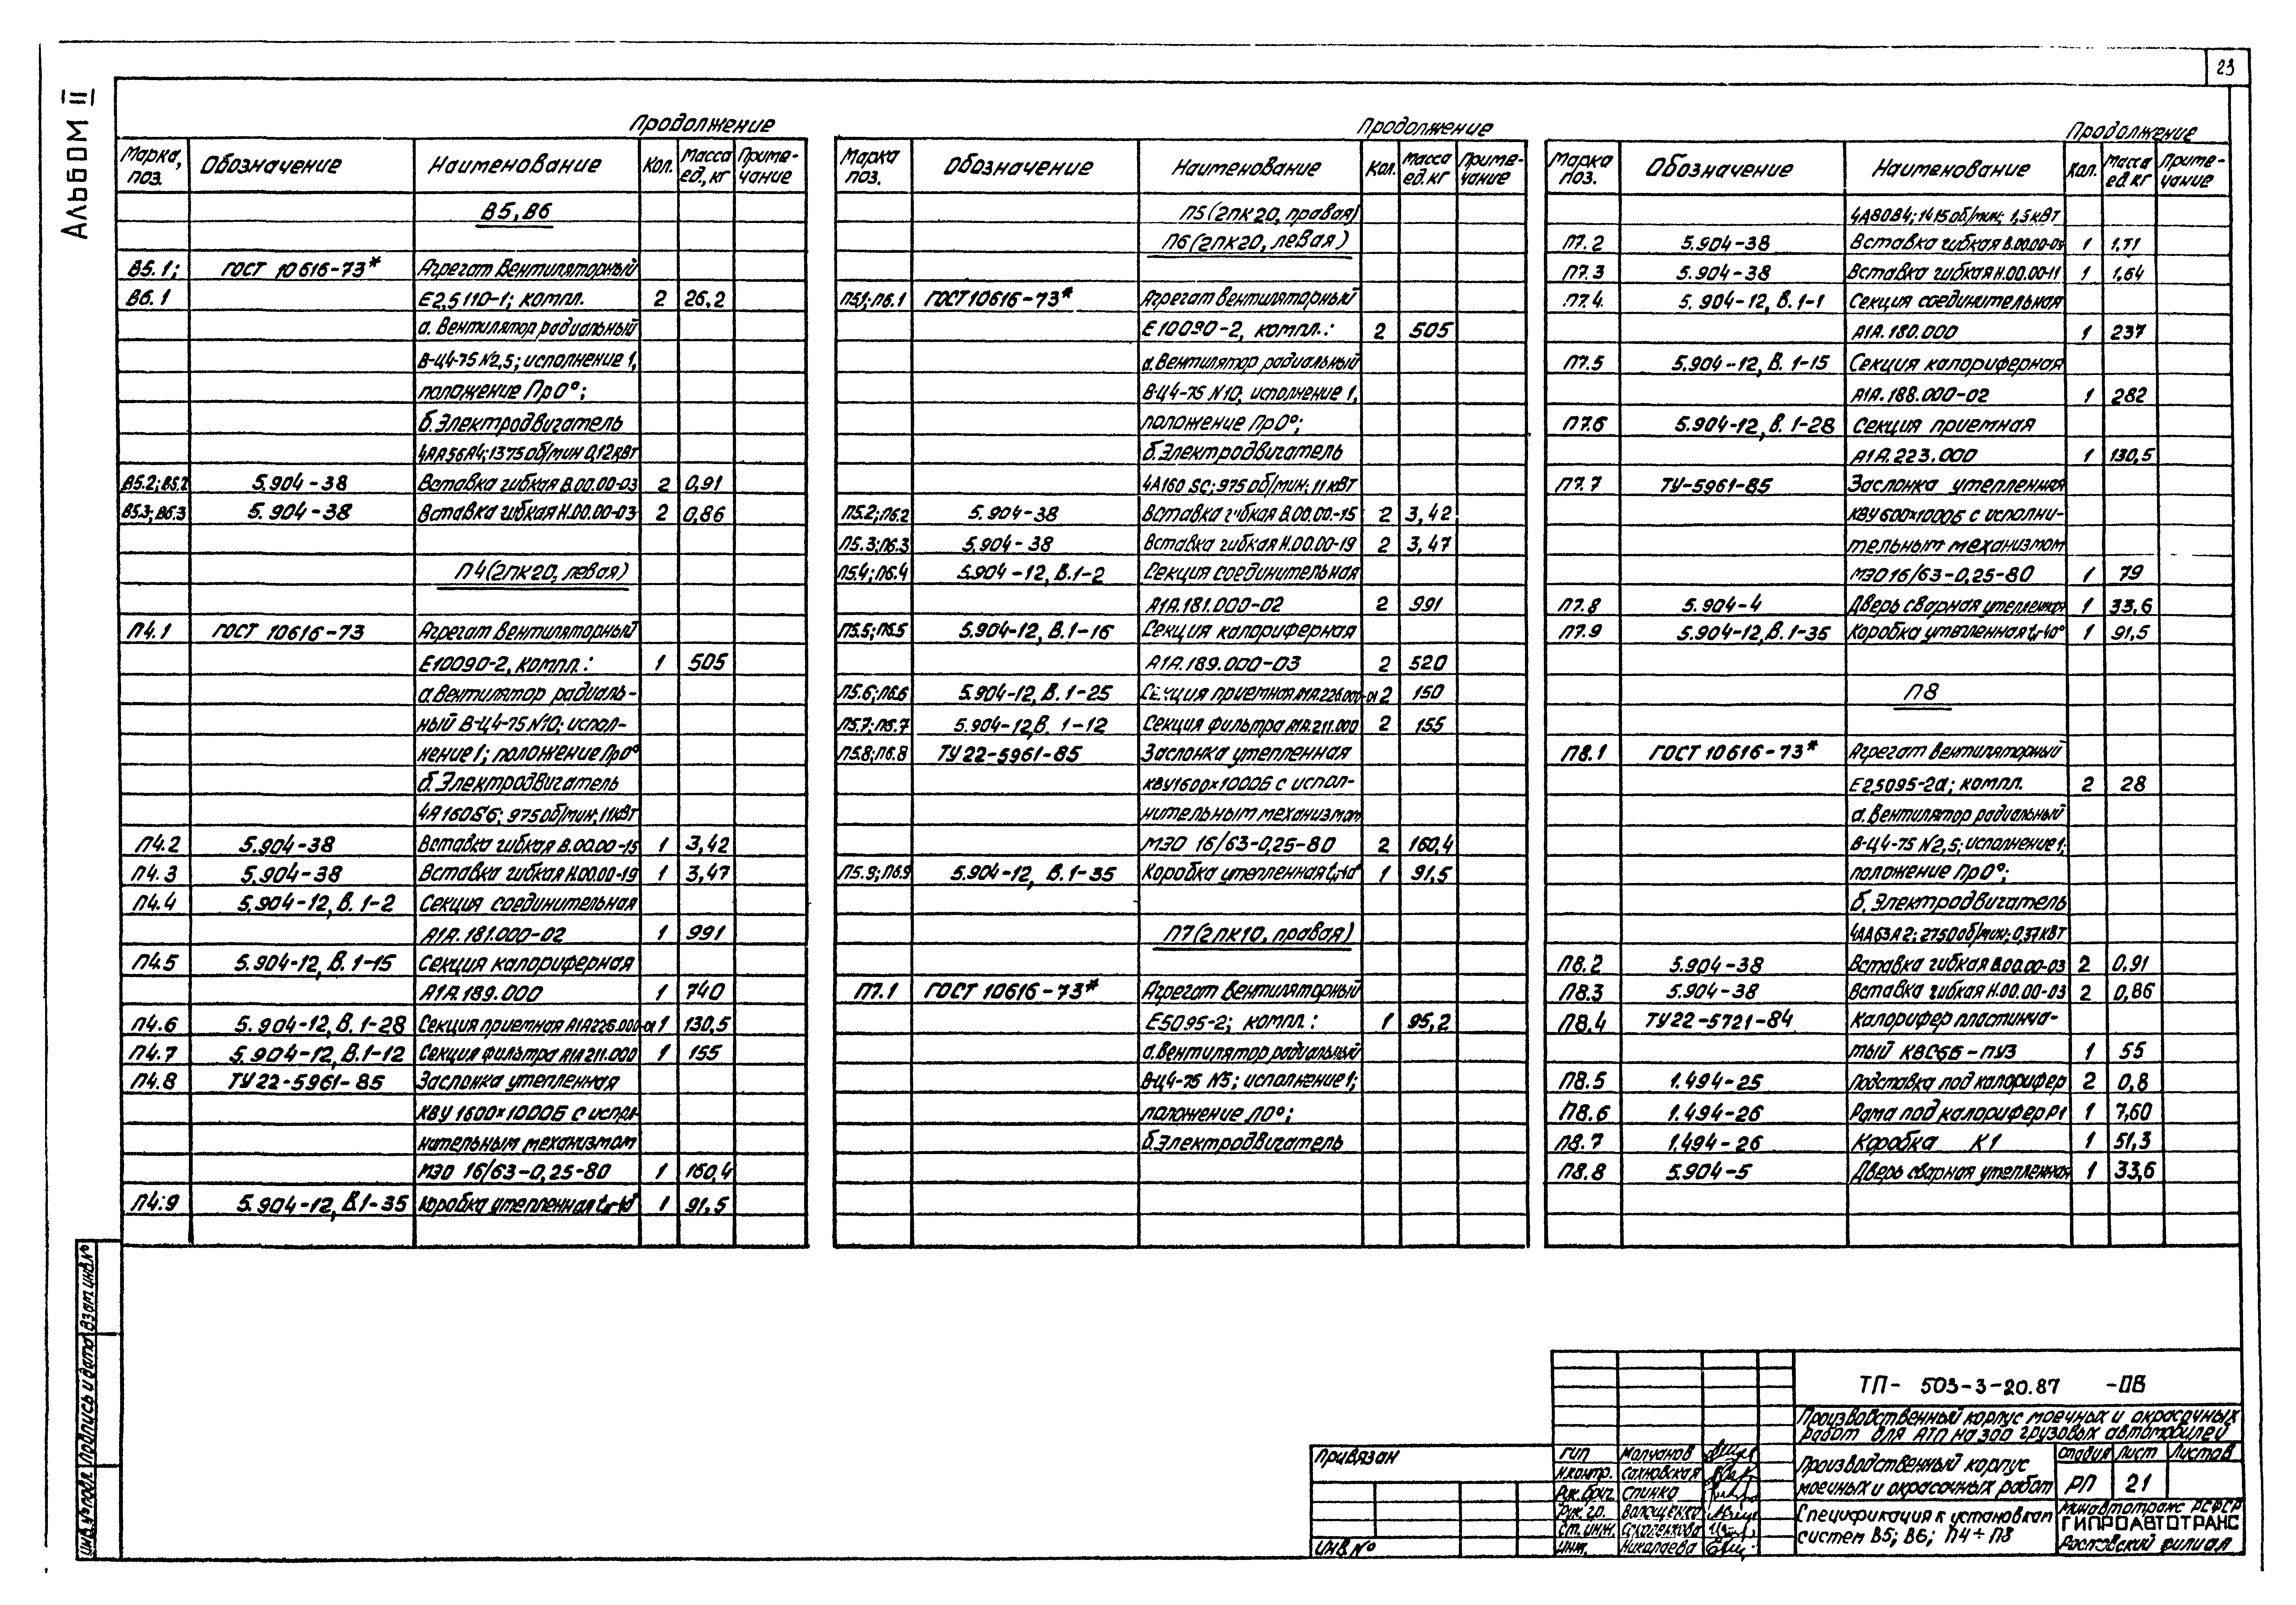 23
Альбом II
Продолжение
Марка, поз. Обозначение Наименование Кол. Масса ед, кг Приме-чание
В5, В6
В5.1; ГОСТ 10616-73* Агрегат вентиляторный
В6.1 Е2,5110-1; компл. 2 26,2
а. Вентилятор радиальный
В-Ц4-75 N2,5; исполнение 1,
положение Пр0°;
б. Электродвигатель
4АА56А4; 1375 об/мин 0,12 кВт
В5.2; В5.2 5.904-38 Вставка гибкая В.00.00-03 2 0,91
В5.3; В6.3 5.904-38 Вставка гибкая Н.00.00-03 2 0,86
П4 (2ПК20, левая)
П4.1 ГОСТ 10616-73 Агрегат вентиляторный
Е10090-2, компл.: 1 505
а. Вентилятор радиаль-
ный В-Ц4-75 N10; испол-
нение 1; положение Пр0°
б. Электродвигатель
4А160S6; 975 об/мин; 11 кВт
П4.2 5.904-38 Вставка гибкая В.00.00-15 1 3,42
П4.3 5.904-38 Вставка гибкая Н.00.00-19 1 3,47
П4.4 5.904-12, В. 1-2 Секция соединительная
А1А.181.000-02 1 991
П4.5 5.904-12, В. 1-15 Секция калориферная
А1А.189.000 1 740
П4.6 5.904-12, В. 1-28 Секция приемная А1А226.000-01 1 130,5
П4.7 5.904-12, В.1-12 Секция фильтра А1А 211.000 1 155
П4.8 ТУ 22-5961-85 Заслонка утепленная
КВУ 1600×1000Б с испол-
нительным механизмом
МЭО 16/63-0,25-80 1 160,4
П4.9 5.904-12, В.1-35 Коробка утепленная 1 91,5
Продолжение
Марка поз. Обозначение Наименование Кол. Масса ед. кг Приме-чание
П5 (2ПК20, правая)
П6 (2ПК20, левая)
П5.1; П6.1 ГОСТ 10616-73* Агрегат вентиляторный
Е10090-2, компл.: 2 505
а. Вентилятор радиальный
В-Ц4-75 N10, исполнение 1,
положение Пр0°;
б. Электродвигатель
4А160 SC; 975 об/мин; 11 кВт
П5.2; П6.2 5.904-38 Вставка гибкая В.00.00-15 2 3,42
П5.3; П6.3 5.904-38 Вставка гибкая Н.00.00-19 2 3,47
П5.4; П6.4 5.904-12, В.1-2 Секция соединительная
А1А.181.000-02 2 991
П5.5; П6.5 5.904-12, В.1-16 Секция калориферная
А1А.189.000-03 2 520
П5.6; П6.6 5.904-12, В.1-25 Секция приемная А1А.226.000-01 2 150
П5.7; П5.7 5.904-12, В. 1-12 Секция фильтра А1А.211.000 2 155
П5.8; П6.8 ТУ 22-5961-85 Заслонка утепленная
КВУ1600×1000Б с испол-
нительным механизмом
МЭО 16/63-0,25-80 2 160,4
П5.9; П6.9 5.904-12, В.1-35 Коробка утепленная 1 91,5
П7 (2ПК10, правая)
П7.1 ГОСТ 10616-73* Агрегат вентиляторный
Е5095-2; компл.: 1 95,2
а. Вентилятор радиальный
В-Ц4-75 N5; исполнение 1;
положение Л0°;
б. Электродвигатель
Продолжение
Марка поз. Обозначение Наименование Кол. Масса ед. кг Приме-чание
4А80В4; 1415 об/мин; 1,5 кВт
П7.2 5.904-38 Вставка гибкая В.00.00-09 1 1,71
П7.3 5.904-38 Вставка гибкая Н.00.00-11 1 1,64
П7.4. 5.904-12, В.1-1 Секция соединительная
А1А.180.000 1 237
П7.5 5.904-12, В. 1-15 Секция калориферная
А1А.188.000-02 1 282
П7.6 5.904-12, В. 1-28 Секция приемная
А1А.223.000 1 130,5
П7.7 ТУ-5961-85 Заслонка утепленная
КВУ 600×1000Б с исполни-
тельным механизмом
МЭО 16/63-0,25-80 1 79
П7.8 5.904-4 Дверь сварная утепленная 1 33,6
П7.9 5.904-12, В.1-35 Коробка утепленная t-40° 1 91,5
П8
П8.1 ГОСТ 10616-73* Агрегат вентиляторный
Е2,5095-2а; компл. 2 28
а. Вентилятор радиальный
В-Ц4-75 N2,5; исполнение 1;
положение Пр0°;
б. Электродвигатель
4АА63А2; 2750 об/мин; 0,37 кВт
П8.2 5.904-38 Вставка гибкая В.00.00-03 2 0,91
П8.3 5.904-38 Вставка гибкая Н.00.00-03 2 0,86
П8.4 ТУ 22-5721-84 Калорифер пластинча-
тый КВС6Б-ПУЗ 1 55
П8.5 1.494-25 Подставка под калорифер 2 0,8
П8.6 1.494-26 Рама под калорифер Р1 1 7,60
П8.7 1.494-26 Коробка К1 1 51,3
П8.8 5.904-5 Дверь сварная утепленная 1 33,6
Инв. № подл. Подпись и дата Взам. инв. №
Привязан
Инв №
ТП- 503-3-20.87 -ОВ
Производственный корпус моечных и окрасочных
работ для АТП на 300 грузовых автомобилей
ГИП Молчанов
Н.контр. Сахновская
Рук. бриг. Спинко
Рук. гр. Волощенко
Ст. инж.
Инж. Николаева
Производственный корпус
моечных и окрасочных работ
Стадия Лист Листов
РП 21
Спецификация к установкам
систем В5; В6; П4÷П8
Минавтотранс РСФСР
ГИПРОАВТОТРАНС
Ростовский филиал